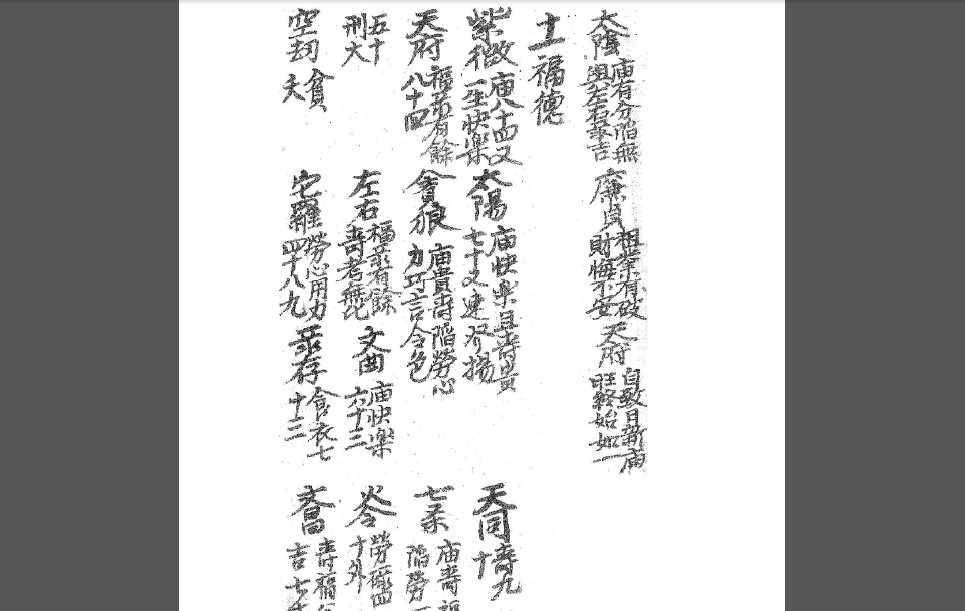 太陰 庙有分陷無與左右
廉貞 祖業有破財悔不安
天府 自致日新庙旺終始如一
十一福德
紫微 庙八十四又一生快樂
太陽 庙快樂且壽貴七十又連
天同 壽九十
天府 福有餘八十四
貪狼 庙貴壽陷勞心力巧言令色
七杀 庙壽福陷勞
五十
刑大
左右 福有餘壽考無比
文曲 庙快樂六十三
火令 勞碌四十外
空刧 貧夭
它羅 勞心用力四十八九
录存 食衣七十三
文昌 壽福吉七